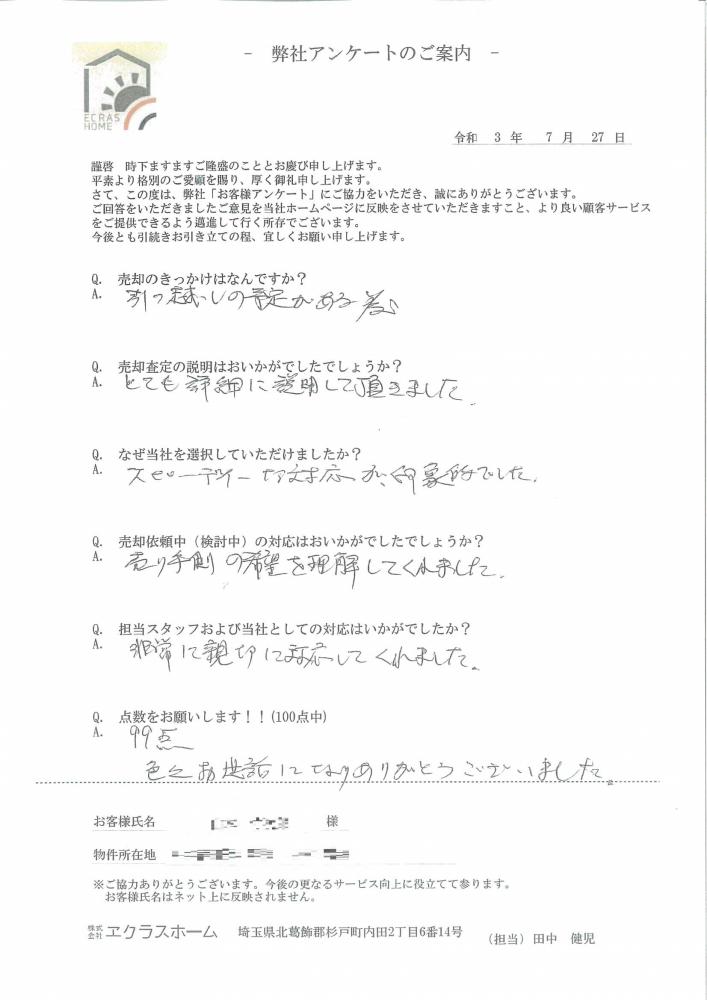 - 弊社アンケートのご案内 -
ECRAS
HOME
令和 3 年 7 月 27 日
謹啓 時下ますますご隆盛のこととお慶び申し上げます。
平素より格別のご愛顧を賜り、厚く御礼申し上げます。
さて、この度は、弊社「お客様アンケート」にご協力をいただき、誠にありがとうございます。
ご回答をいただきましたご意見を当社ホームページに反映をさせていただきますこと、より良い顧客サービス
をご提供できるよう邁進して行く所存でございます。
今後とも引続きお引き立ての程、宜しくお願い申し上げます。
Q. 売却のきっかけはなんですか？
A. 引っ越しの予定がある為
Q. 売却査定の説明はおいかがでしたでしょうか？
A. とても詳細に説明して頂きました
Q. なぜ当社を選択していただけましたか？
A. スピーディーな対応が、印象的でした。
Q. 売却依頼中（検討中）の対応はおいかがでしたでしょうか？
A. 売り手側の希望を理解してくれました。
Q. 担当スタッフおよび当社としての対応はいかがでしたか？
A. 非常に親切に対応してくれました。
Q. 点数をお願いします！！(100点中)
A. 99点
色々お世話になりありがとうございました。
お客様氏名 様
物件所在地
※ご協力ありがとうございます。今後の更なるサービス向上に役立てて参ります。
お客様氏名はネット上に反映されません。
株式会社 ヱクラスホーム 埼玉県北葛飾郡杉戸町内田2丁目6番14号 （担当）田中 健児